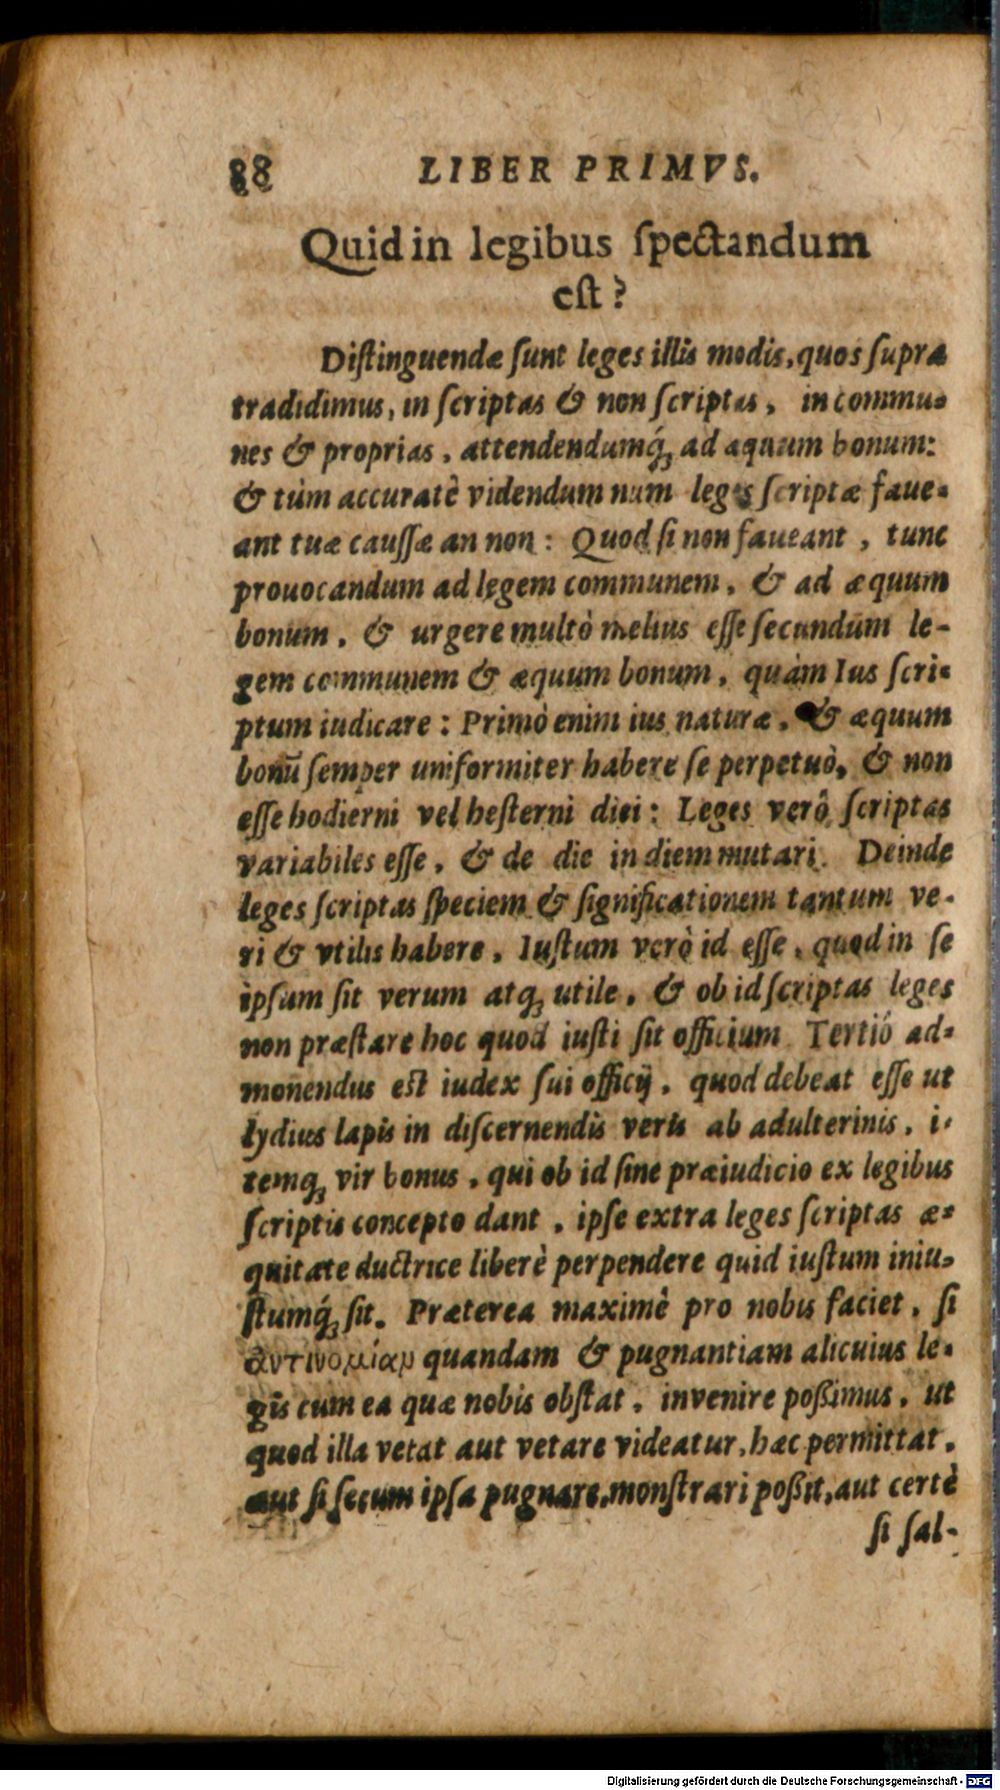 88 LIBER PRIMVS.
Quid in legibus ſpectandum
eſt?
Diſtinguendæ ſunt leges illis modis, quos ſupra
tradidimus, in ſcriptas & non ſcriptas, in commu-
nes & proprias, attendendumq́ꝫ ad æquum bonum:
& tùm accuratè videndum num leges ſcriptæ faue-
ant tuæ cauſſæ an non: Quod ſi non faueant, tunc
prouocandum ad legem communem, & ad æquum
bonum, & urgere multò melius eſſe ſecundùm le-
gem communem & æquum bonum, quàm Ius ſcri-
ptum iudicare: Primò enim ius naturæ, & æquum
bonū ſemper uniformiter habere ſe perpetuò, & non
eſſe hodierni vel heſterni diei: Leges verô ſcriptas
variabiles eſſe, & de die in diem mutari. Deinde
leges ſcriptas ſpeciem & ſignificationem tantum ve-
ri & vtilis habere, Iuſtum verò id eſſe, quod in ſe
ipſum ſit verum atqꝫ utile, & ob id ſcriptas leges
non præſtare hoc quod iuſti ſit officium. Tertiò ad-
monendus eſt iudex ſui officij, quod debeat eſſe ut
lydius lapis in diſcernendis veris ab adulterinis, i-
temqꝫ vir bonus, qui ob id ſine præiudicio ex legibus
ſcriptis concepto dant, ipſe extra leges ſcriptas æ-
quitate ductrice liberè perpendere quid iuſtum iniu-
ſtumq́ꝫ ſit. Præterea maximè pro nobis faciet, ſi
ἀντινομίαν quandam & pugnantiam alicuius le-
gis cum ea quæ nobis obſtat, invenire poßimus, ut
quod illa vetat aut vetare videatur, hæc permittat,
aut ſi ſecum ipſa pugnare, monſtrari poßit, aut certè
ſi ſal-
Digitalisierung gefördert durch die Deutsche Forschungsgemeinschaft - DFG